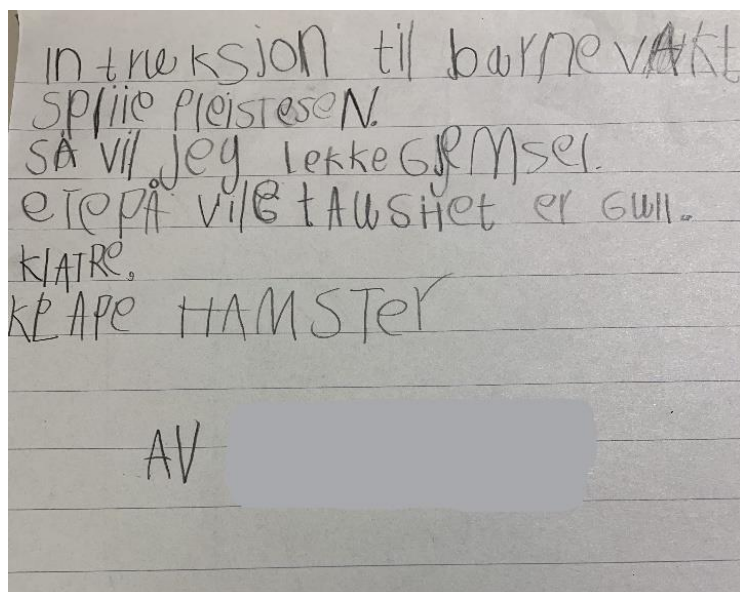 intruksjon til barnevakt
spliie Pleistesen.
SÅ vil jeg lekke GjeMsel.
eTePÅ vile tAUSHet er GUll.
KlATRe.
KLAPe HAMSTer
AV